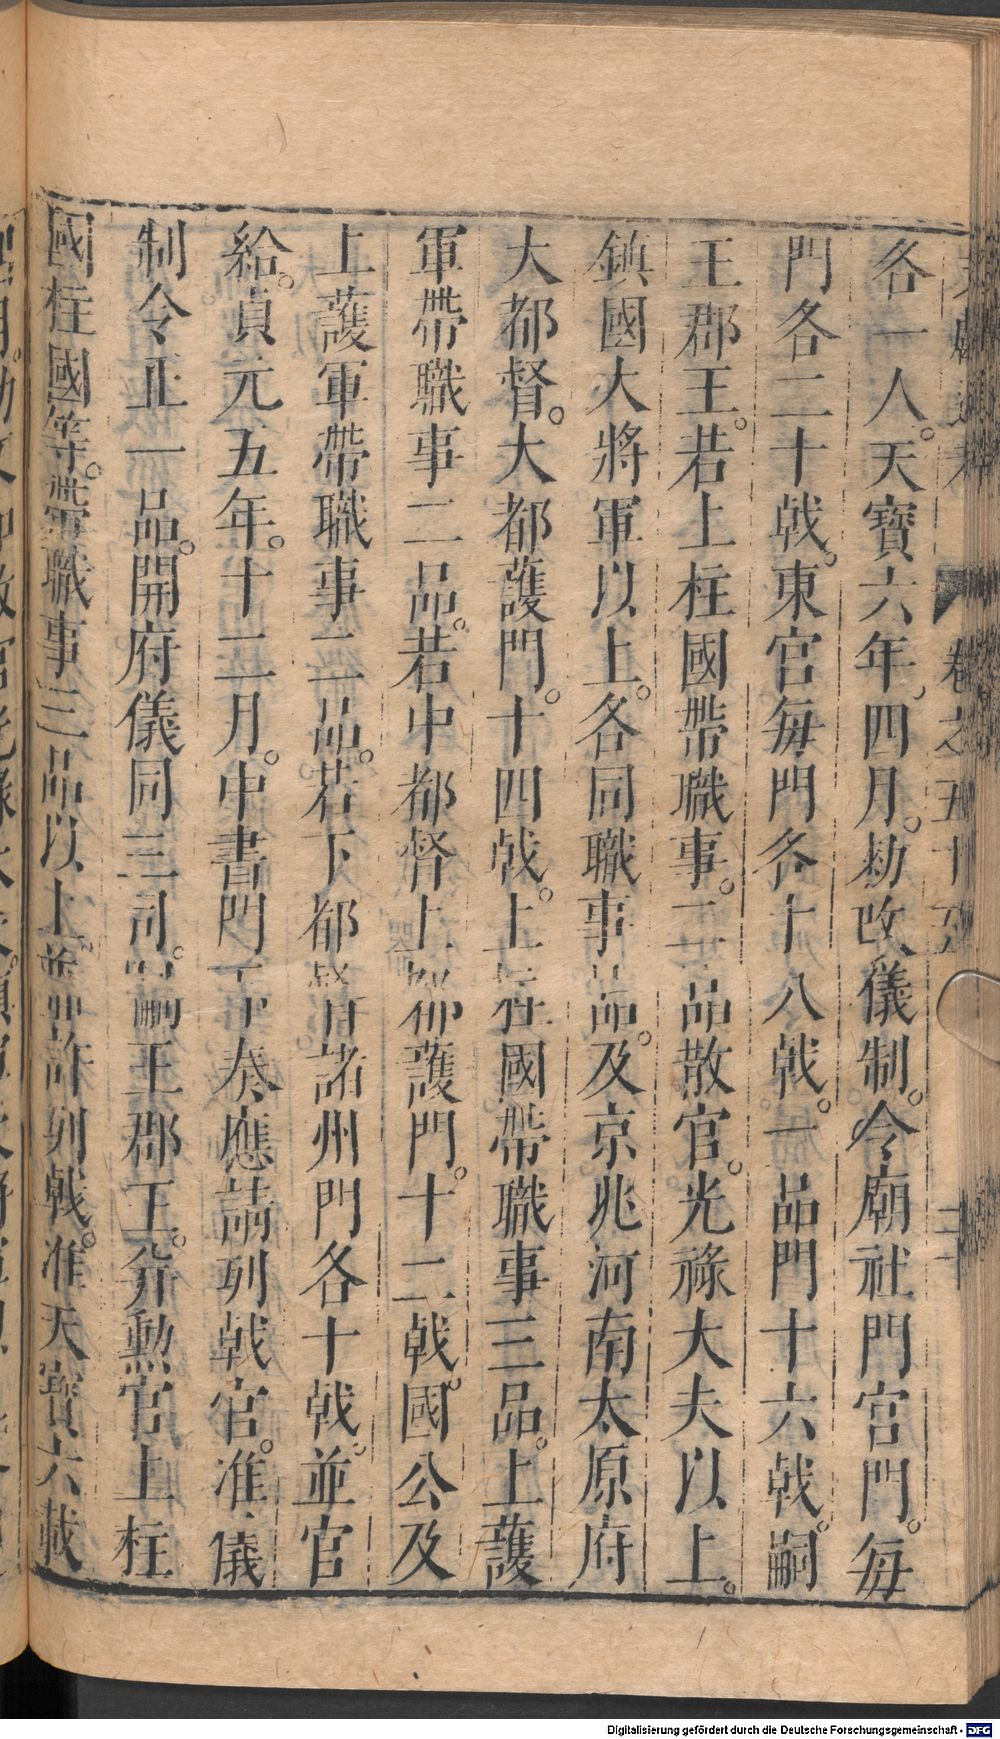 各一人。天寶六年、四月。勑改儀制。令廟社門宮門。每
門各二十戟。東宮每門各十八戟。一品門十六戟。嗣
王郡王。若上柱國帶職事。二品散官。光祿大夫以上。
鎮國大將軍以上。各同職事品。及京兆河南太原府
大都督。大都護門。十四戟。上柱國帶職事三品。上護
軍帶職事二品。若中都督上都護門。十二戟。國公及
上護軍帶職事三品。若下都督諸州門各十戟。並官
給。貞元五年。十二月。中書門下奏應請列戟官。准儀
制令正一品。開府儀同三司。嗣王郡王。并勳官上柱
國柱國等。帶職事三品以上。並許列戟。准天寶六載
卷之五十五
Digitalisierung gefördert durch die Deutsche Forschungsgemeinschaft - DFG